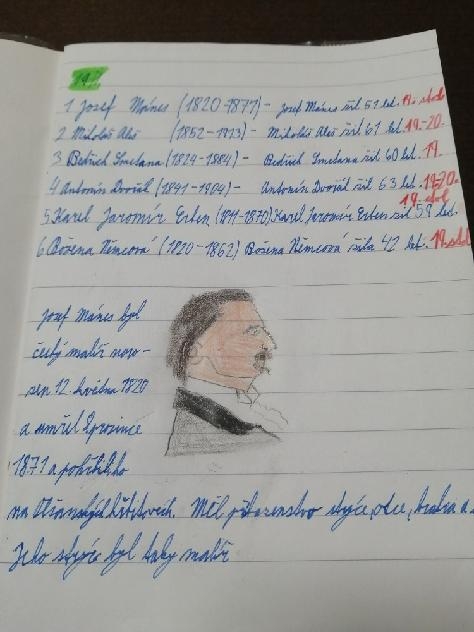 19.
1 Josef Mánes (1820-1871) - Josef Mánes žil 51 let. 19. stol
2 Mikoláš Aleš (1852-1913) - Mikoláš Aleš žil 61 let. 19.-20.
3 Bedřich Smetana (1824-1884) - Bedřich Smetana žil 60 let. 19.
4 Antonín Dvořák (1841-1904) - Antonín Dvořák žil 63 let. 19-20.
19. stol
5 Karel Jaromír Erben (1811-1870) Karel Jaromír Erben žil 59 let.
6 Božena Němcová (1820-1862) Božena Němcová žila 42 let. 19. stol
Josef Mánes byl
český malíř naro-
zen 12. května 1820
a umřel 9 prosince
1871 a pohřbili ho
na Olšanských hřbitovech. Měl příbuzenstvo strýce, otce, bratra a
Jeho strýc byl taky malíř